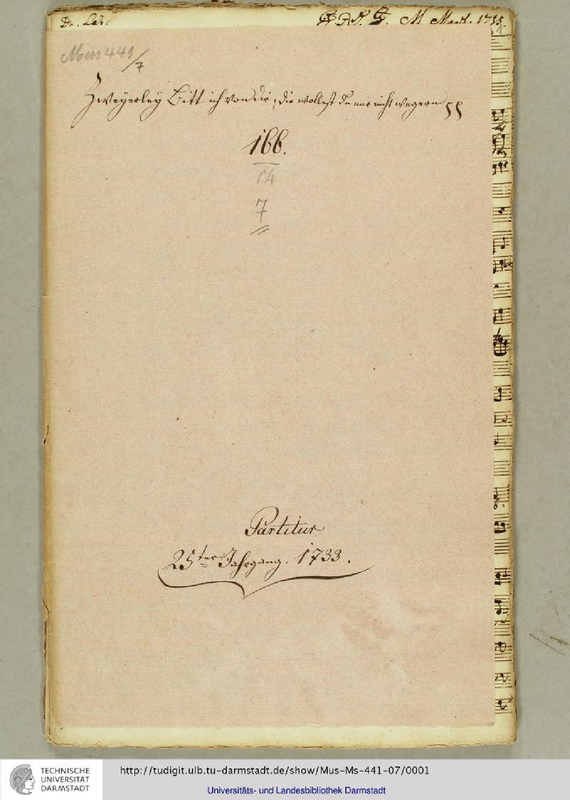 M. Mart. 1733.
Mus 441
/7
Zweyerley Bitt ich von dir, die wollest du mir nicht wegern
166.
14
7
Partitur
25ter Jahrgang. 1733.
TECHNISCHE
UNIVERSITÄT
DARMSTADT
http://tudigit.ulb.tu-darmstadt.de/show/Mus-Ms-441-07/0001
Universitäts- und Landesbibliothek Darmstadt